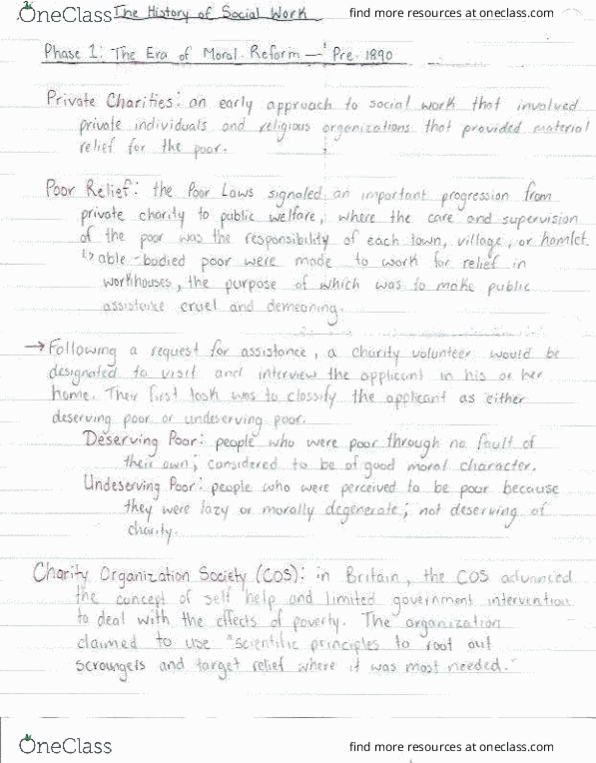 OneClass
The History of Social Work
find more resources at oneclass.com
Phase 1: The Era of Moral Reform — Pre-1890
Private Charities: an early approach to social work that involved
private individuals and religious organizations that provided material
relief for the poor.
Poor Relief: the Poor Laws signaled an important progression from
private charity to public welfare, where the care and supervision
of the poor was the responsibility of each town, village, or hamlet.
↳ able-bodied poor were made to work for relief in
workhouses, the purpose of which was to make public
assistance cruel and demeaning.
→ Following a request for assistance, a charity volunteer would be
designated to visit and interview the applicant in his or her
home. They first task was to classify the applicant as either
deserving poor or undeserving poor.
Deserving Poor: people who were poor through no fault of
their own; considered to be of good moral character.
Undeserving Poor: people who were perceived to be poor because
they were lazy or morally degenerate; not deserving of
charity.
Charity Organization Society (COS): in Britain, the COS advanced
the concept of self help and limited government intervention
to deal with the effects of poverty. The organization
claimed to use "scientific principles to root out
scroungers and target relief where it was most needed."
OneClass
find more resources at oneclass.com